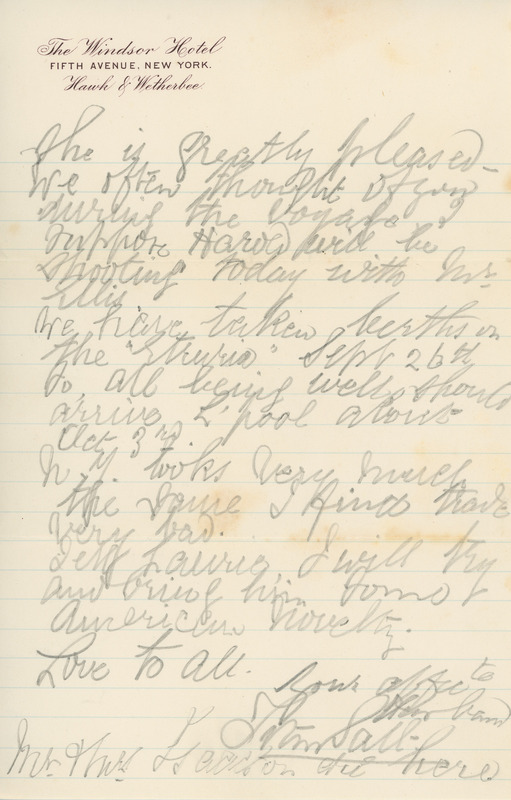 The Windsor Hotel
FIFTH AVENUE, NEW YORK.
Hawk & Wetherbee
She is greatly pleased
We often thought of you
during the voyage I
suppose Harold will be
shooting today with Mr
Ellis
We have taken berths in
the "Etruria" Sept 26th
so all being well should
arrive L'pool about
Oct 3rd.
N.Y. looks very much
the same I find trade
very bad.
Tell Laurie I will try
and bring him some
American Novelty.
Love to all.
Your affecte
Husband
Mr & Mrs are here